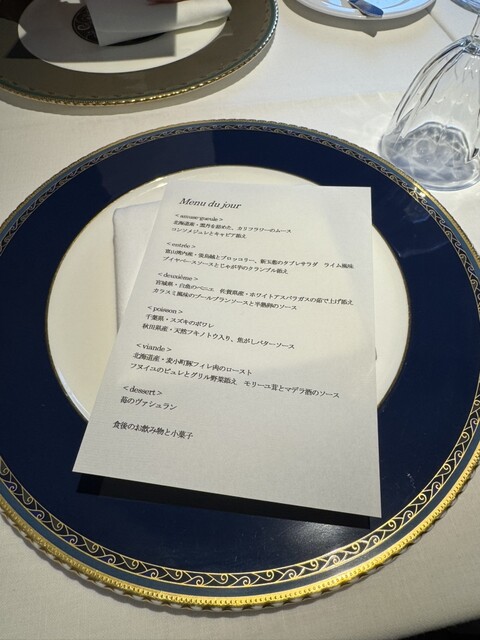 Menu du jour
＜amuse-gueule＞
北海道産・雲丹を詰めた、カリフラワーのムース
コンソメジュレとキャビア添え
＜entrée＞
富山湾内産・蛍烏賊とブロッコリー、新玉葱のタブレサラダ　ライム風味
ブイヤベースソースとじゃが芋のクランブル添え
＜deuxième＞
宮城県・白魚のベニエ　佐賀県産・ホワイトアスパラガスの茹で上げ添え
カラスミ風味のブールブランソースと半熟卵のソース
＜poisson＞
千葉県・スズキのポワレ
秋田県産・天然フキノトウ入り、焦がしバターソース
＜viande＞
北海道産・麦小町豚フィレ肉のロースト
フヌイユのピュレとグリル野菜添え　モリーユ茸とマデラ酒のソース
＜dessert＞
苺のヴァシュラン
食後のお飲み物と小菓子